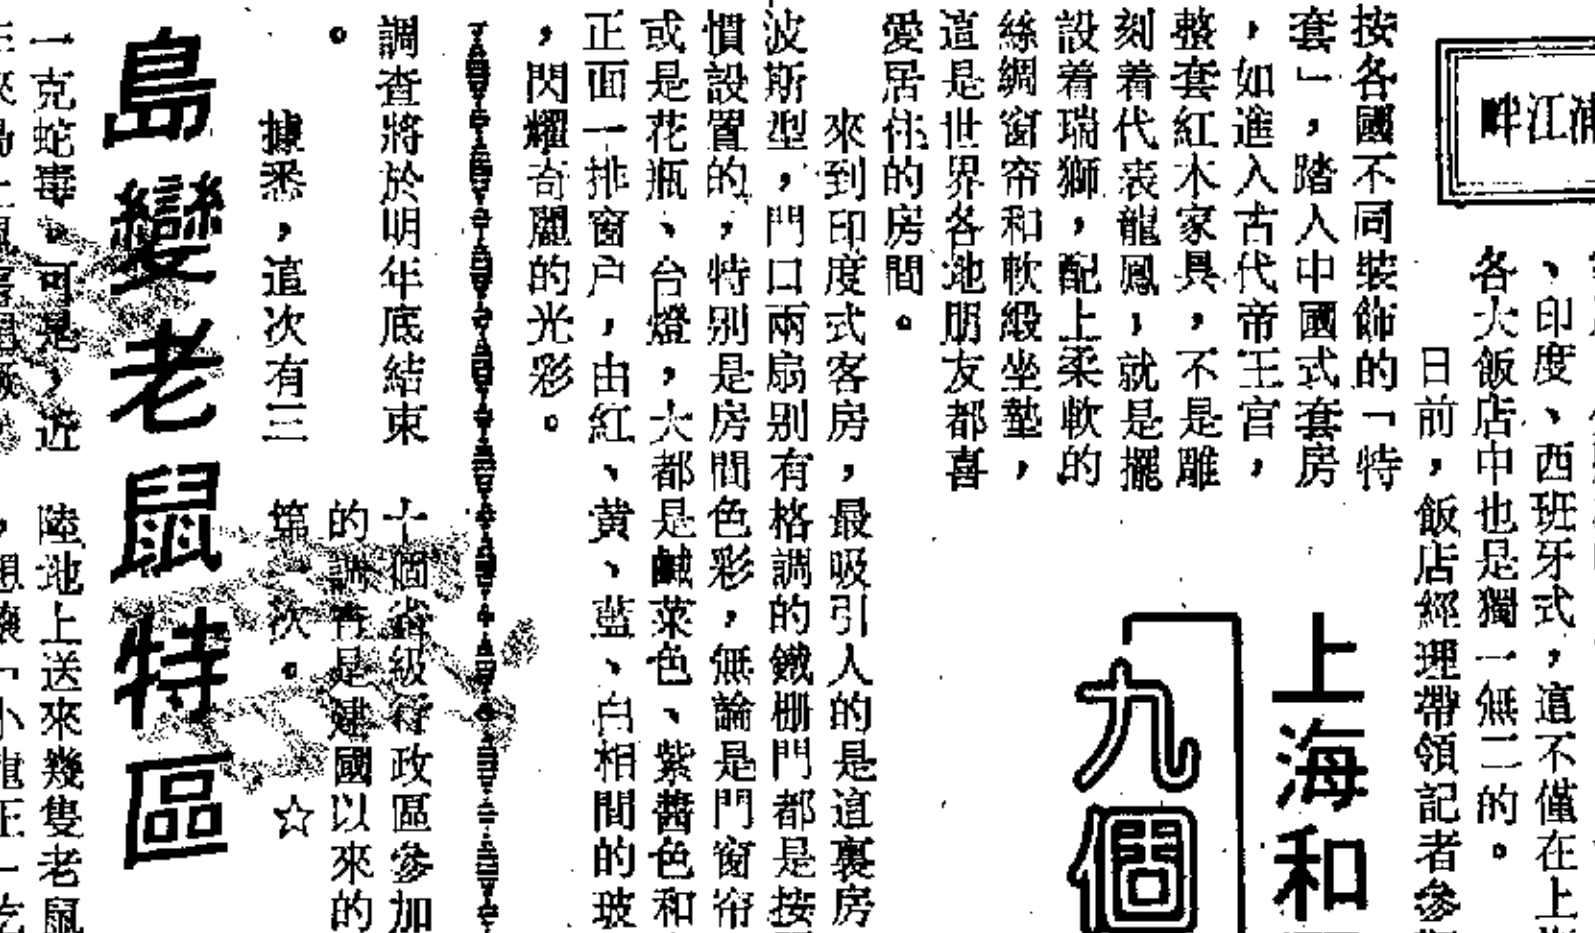 浦江畔
、印度、西班牙式，這不僅在上
各大飯店中也是獨一無二的。
日前，飯店經理帶領記者參
按各國不同裝飾的「特
套」，踏入中國式套房
，如進入古代帝王宮，
整套紅木家具，不是雕
刻着代表龍鳳，就是擺
設着瑞獅，配上柔軟的
絲綢窗帘和軟緞坐墊，
這是世界各地朋友都喜
愛居住的房間。
上海和
九個
來到印度式客房，最吸引人的是這裏房
波斯型，門口兩扇别有格調的鐵柵門都是按
慣設置的，特别是房間色彩，無論是門窗帘
或是花瓶、台燈，大都是鹹菜色、紫醬色和
正面一排窗户，由紅、黄、藍、白相間的玻
，閃耀奇麗的光彩。
調查將於明年底結束
。
據悉，這次有三
十個省級行政區參加
的調查是建國以來的
第一次。☆
島變老鼠特區
一克蛇毒。可是，近
陸地上送來幾隻老鼠